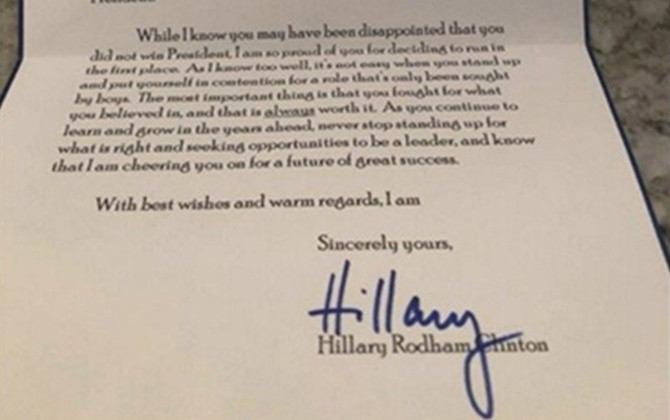 While I know you may have been disappointed that you
did not win President, I am so proud of you for deciding to run in
the first place. As I know too well, it's not easy when you stand up
and put yourself in contention for a role that's only been sought
by boys. The most important thing is that you fought for what
you believed in, and that is always worth it. As you continue to
learn and grow in the years ahead, never stop standing up for
what is right and seeking opportunities to be a leader, and know
that I am cheering you on for a future of great success.
With best wishes and warm regards, I am
Sincerely yours,
Hillary
Hillary Rodham Clinton